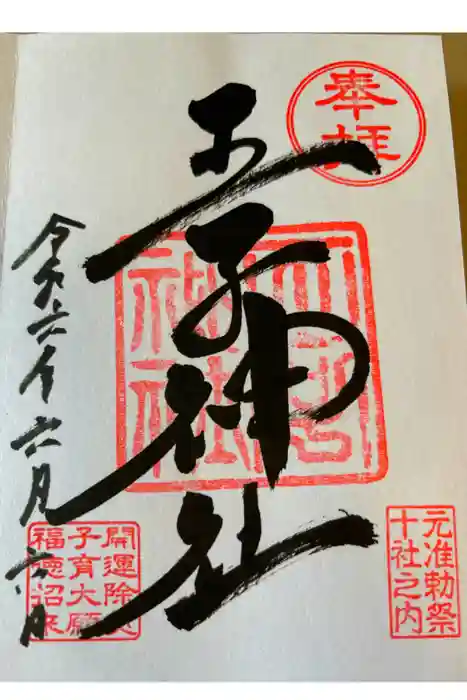 奉拝
王子神社
元准勅祭
十社之内
令和六年六月六日
開運除
子育大願
福徳招来